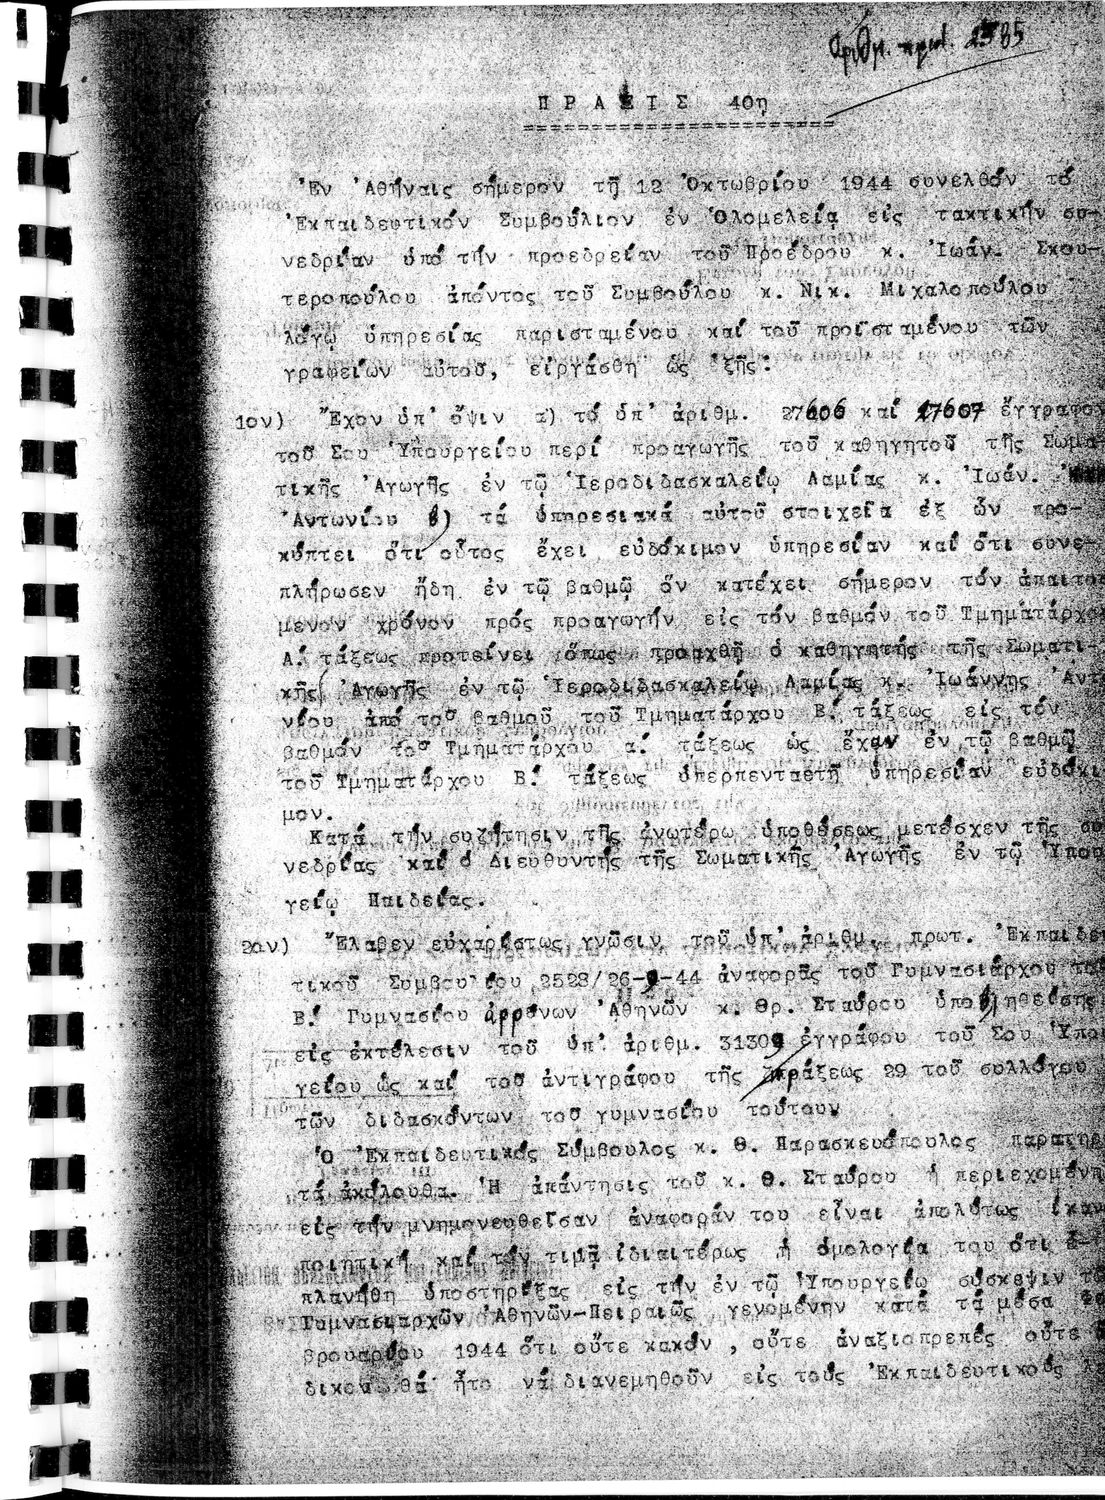 Ἀριθμ. πρωτ. 2585
ΠΡΑΞΙΣ 40η
Ἐν Ἀθήναις σήμερον τῇ 12 Ὀκτωβρίου 1944 συνελθόν τό
Ἐκπαιδευτικόν Συμβούλιον ἐν Ὁλομελείᾳ εἰς τακτικήν συ-
νεδρίαν ὑπό τήν προεδρείαν τοῦ Προέδρου κ. Ἰωάν. Σκου-
τεροπούλου ἀπόντος τοῦ Συμβούλου κ. Νικ. Μιχαλοπούλου
λόγῳ ὑπηρεσίας παρισταμένου καί τοῦ προϊσταμένου τῶν
γραφείων αὐτοῦ, εἰργάσθη ὡς ἑξῆς:
1ον) Ἔχον ὑπ' ὄψιν α) τό ὑπ' ἀριθμ. 27606 καί 27607 ἔγγραφον
τοῦ Σου Ὑπουργείου περί προαγωγῆς τοῦ καθηγητοῦ τῆς Σωμα-
τικῆς Ἀγωγῆς ἐν τῷ Ἱεροδιδασκαλείῳ Λαμίας κ. Ἰωάν.
Ἀντωνίου β) τά ὑπηρεσιακά αὐτοῦ στοιχεῖα ἐξ ὧν προ-
κύπτει ὅτι οὗτος ἔχει εὐδόκιμον ὑπηρεσίαν καί ὅτι συνε-
πλήρωσεν ἤδη ἐν τῷ βαθμῷ ὅν κατέχει σήμερον τόν ἀπαιτού
μενον χρόνον πρός προαγωγήν εἰς τόν βαθμόν τοῦ Τμηματάρχου
Α! τάξεως προτείνει ὅπως προαχθῇ ὁ καθηγητής τῆς Σωματι-
κῆς Ἀγωγῆς ἐν τῷ Ἱεροδιδασκαλείῳ Λαμίας κ. Ἰωάννης Ἀντ
νίου ἀπό τοῦ βαθμοῦ τοῦ Τμηματάρχου Β! τάξεως εἰς τόν
βαθμόν τοῦ Τμηματάρχου α! τάξεως ὡς ἔχων ἐν τῷ βαθμῷ
τοῦ Τμηματάρχου Β! τάξεως ὑπερπενταετῆ ὑπηρεσίαν εὐδόκι
μον.
Κατά τήν συζήτησιν τῆς ἀνωτέρω ὑποθέσεως μετέσχεν τῆς συ
νεδρίας καί ὁ Διευθυντής τῆς Σωματικῆς Ἀγωγῆς ἐν τῷ Ὑπουρ
γείῳ Παιδείας.
2ον) Ἔλαβεν εὐχαρίστως γνῶσιν τοῦ ὑπ' ἀριθμ. πρωτ. Ἐκπαιδευ
τικοῦ Συμβουλίου 2528/26-9-44 ἀναφορᾶς τοῦ Γυμνασιάρχου τοῦ
Β! Γυμνασίου ἀρρένων Ἀθηνῶν κ. Θρ. Σταύρου ὑποβληθείσης
εἰς ἐκτέλεσιν τοῦ ὑπ' ἀριθμ. 31309 ἐγγράφου τοῦ Σου Ὑπουρ
γείου ὡς καί τοῦ ἀντιγράφου τῆς πράξεως 29 τοῦ συλλόγου
τῶν διδασκόντων τοῦ γυμνασίου τούτου
Ὁ Ἐκπαιδευτικός Σύμβουλος κ. Θ. Παρασκευόπουλος παρατηρ
τά ἀκόλουθα. Ἡ ἀπάντησις τοῦ κ. Θ. Σταύρου ἡ περιεχομένη
εἰς τήν μνημονευθεῖσαν ἀναφοράν του εἶναι ἀπολύτως ἱκανο
ποιητική καί τόν τιμᾷ ἰδιαιτέρως ἡ ὁμολογία του ὅτι ἐ-
πλανήθη ὑποστηρίξας εἰς τήν ἐν τῷ Ὑπουργείῳ σύσκεψιν τῶν
Γυμνασιαρχῶν Ἀθηνῶν-Πειραιῶς γενομένην κατά τά μέσα Φε
βρουαρίου 1944 ὅτι οὔτε κακόν, οὔτε ἀναξιοπρεπές οὔτε
δικον θά ἦτο νά διανεμηθοῦν εἰς τούς Ἐκπαιδευτικούς